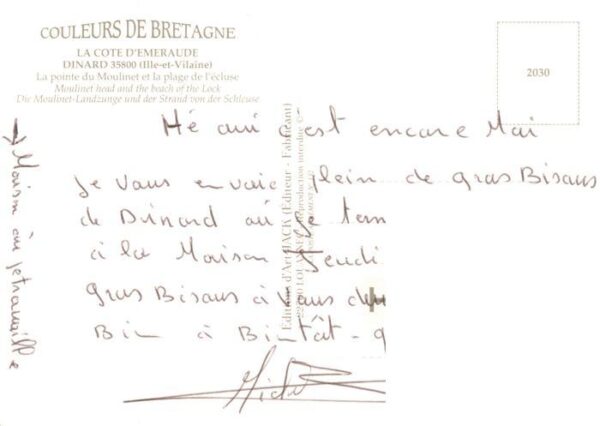 COULEURS DE BRETAGNE
LA COTE D'EMERAUDE
DINARD 35800 (Ille-et-Vilaine)
La pointe du Moulinet et la plage de l'écluse
Moulinet head and the beach of the Lock
Die Moulinet-Landzunge und der Strand von der Schleuse
2030
Hé oui c'est encore Moi
Je vous envoie plein de gros Bisous
de Dinard où Je
à la Maison Jeudi
gros Bisous à vous
Bien à Bientôt -
→ Maison où je travaille
Editions d'Art JACK (Éditeur - Fabricant)
Reproduction interdite